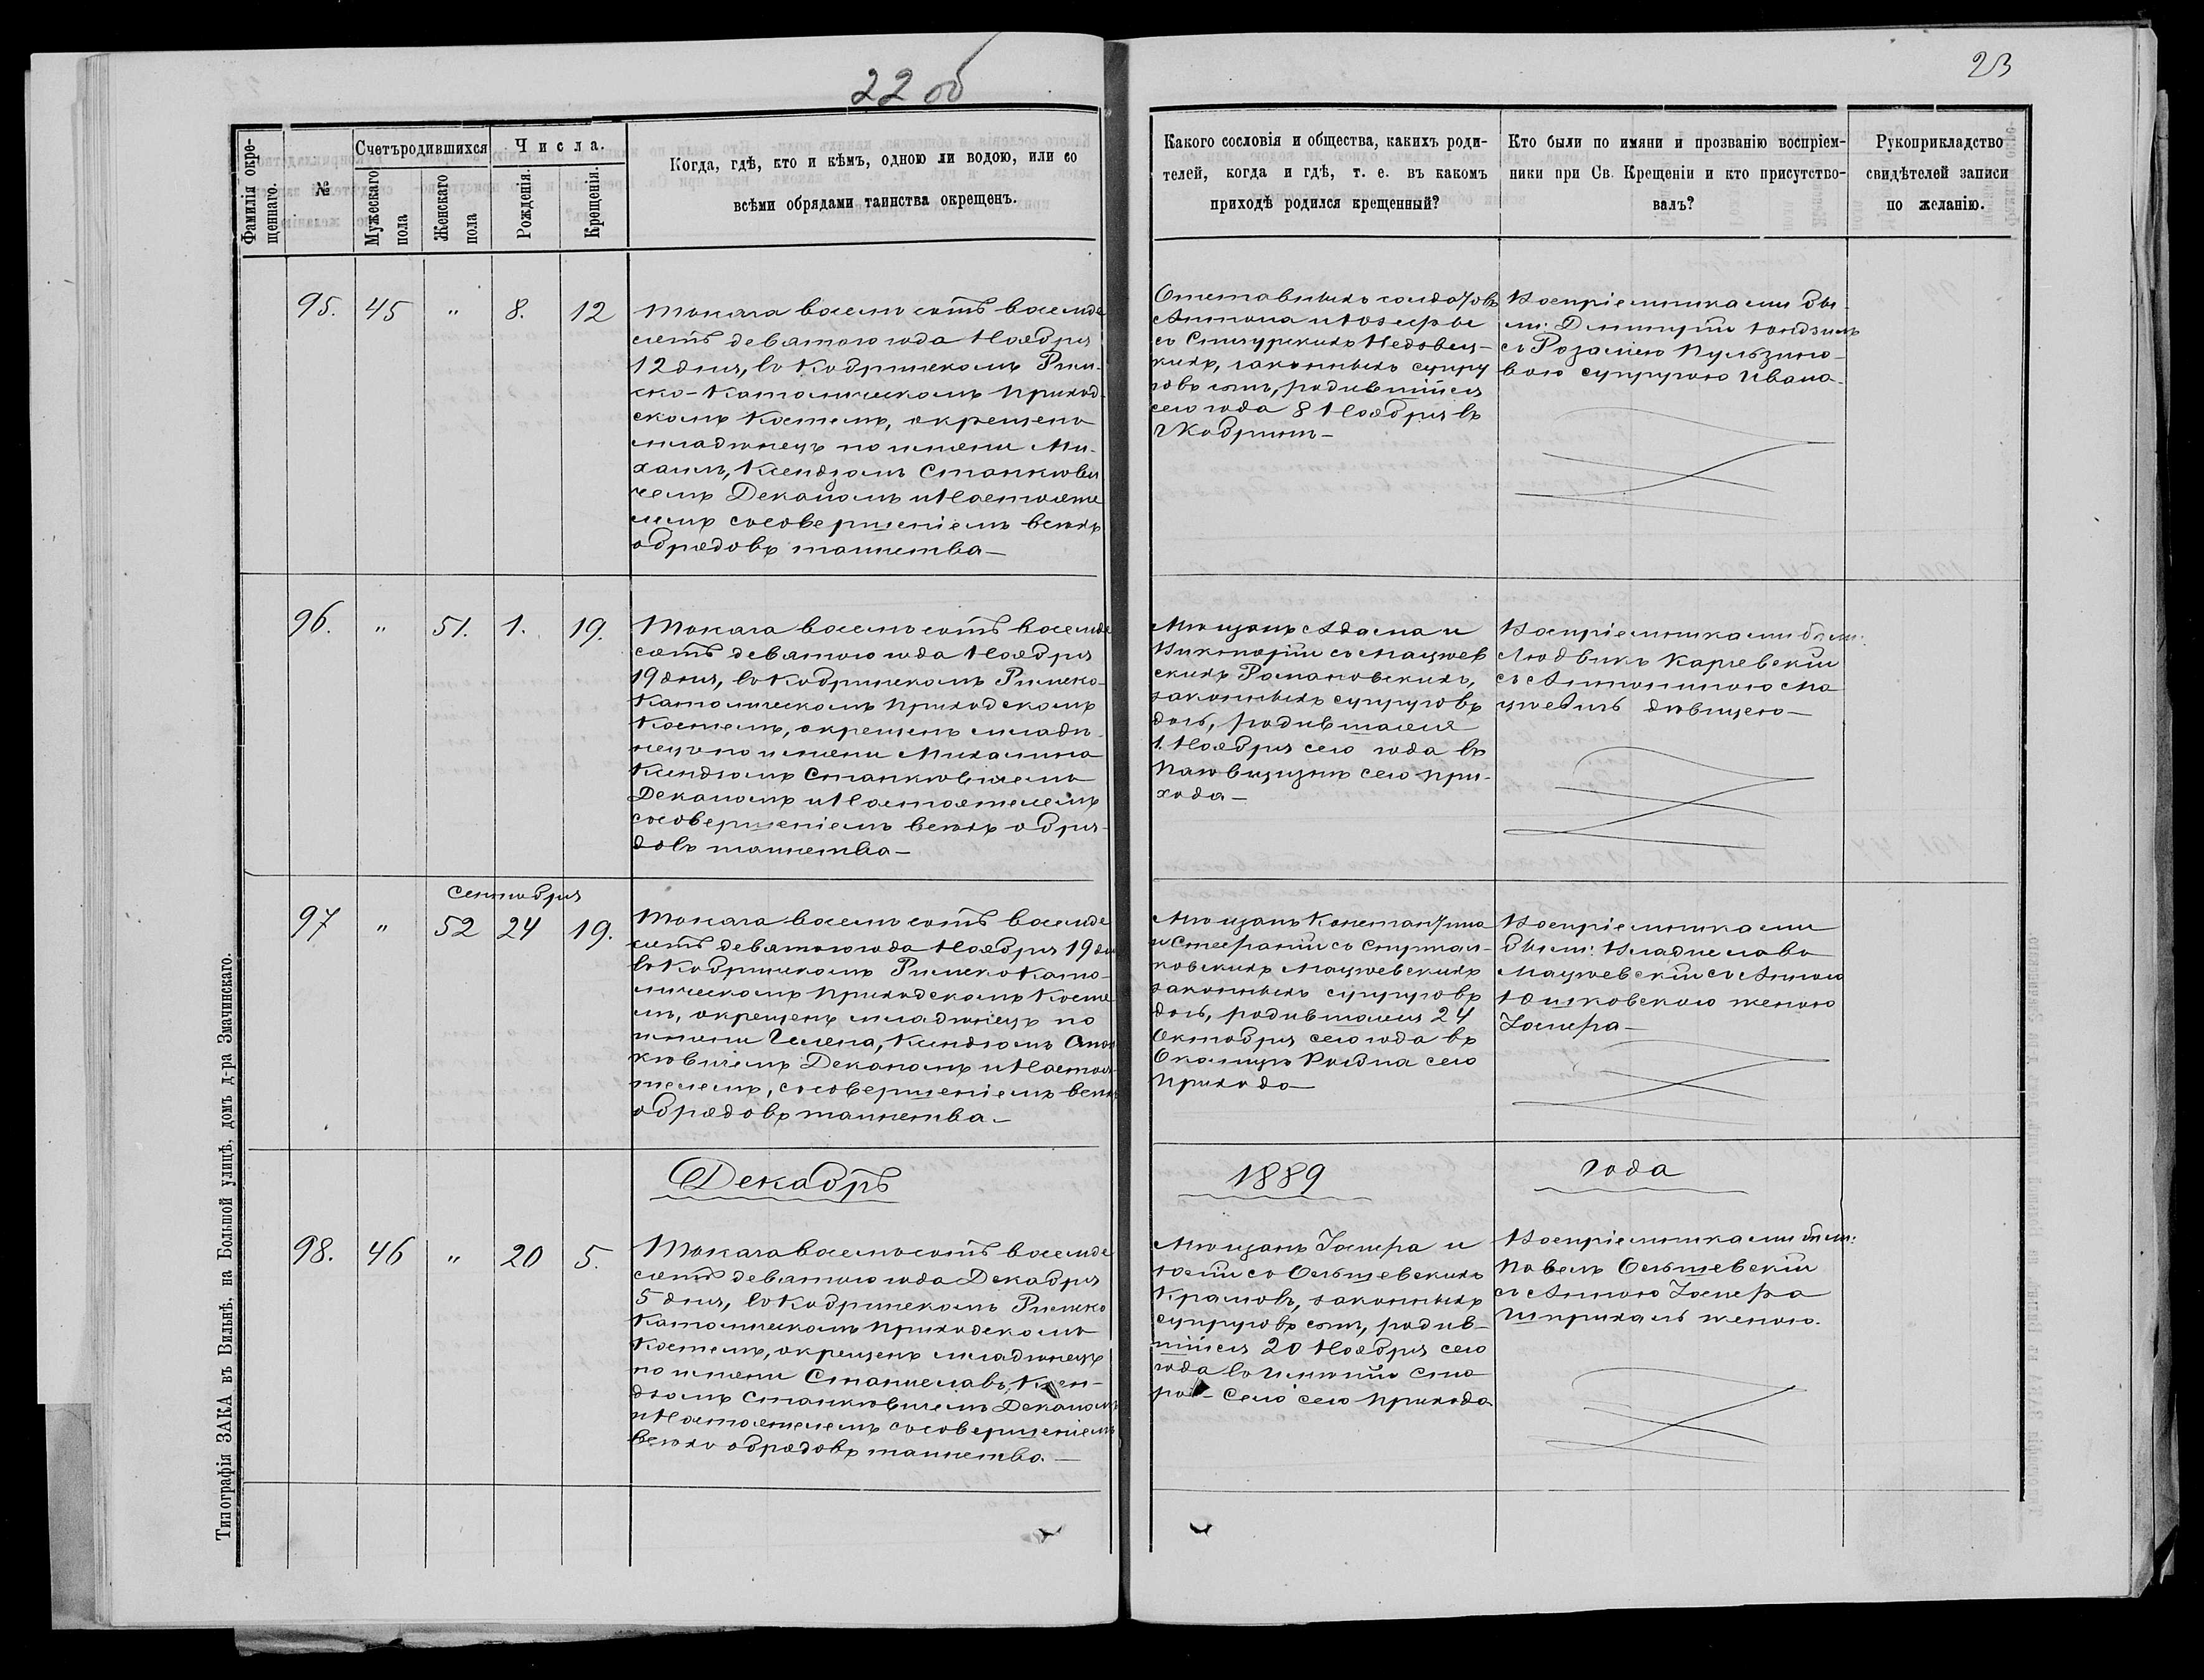 22 об
23
Фамилія окре-
щеннаго.
№
Счетъ родившихся
Мужескаго
пола
Женскаго
пола
Числа.
Рожденія.
Крещенія.
Когда, гдѣ, кто и кѣмъ, одною ли водою, или со
всѣми обрядами таинства окрещенъ.
Какого сословія и общества, какихъ роди-
телей, когда и гдѣ, т. е. въ какомъ
приходѣ родился крещенный?
Кто были по имяни и прозванію воспріем-
ники при Св. Крещеніи и кто присутство-
валъ?
Рукоприкладство
свидѣтелей записи
по желанію.
95. 45 " 8. 12
Тысяча восемь сотъ восемьде
сятъ девятого года Ноября
12 дня, во Кобринскомъ Рим-
ско-Католическомъ Приход-
скомъ Костелѣ, окрещено
младѣнецъ по имени Ми-
хаилъ, Ксендзомъ Станкеви
чемъ Деканомъ и Настояте
лемъ сосовершеніемъ всѣхъ
обрядовъ таинства—
Отставныхъ солдатовъ
Антона и Іозефы
съ Недовец-
кихъ, законныхъ супру
говъ сынъ, родившійся
сего года 8 Ноября въ
г Кобринѣ—
Воспріемниками бы-
ли: Дмитрій
съ Розаліею
вою супругою Ивана
96. " 51. 1. 19.
Тысяча восемь сотъ восемьде
сятъ девятого года Ноября
19 дня, во Кобринскомъ Римско-
Католическомъ Приходскомъ
Костелѣ, окрещенъ младѣ-
нецъ по имени Михалина
Ксендзомъ Станкевичемъ
Деканомъ и Настоятелемъ
сосовершеніемъ всѣхъ обря-
довъ таинства—
Мѣщанъ Адама и
Викторіи съ Мацѣев
скихъ Романовскихъ,
законныхъ супруговъ
дочь, родившаяся
1. Ноября сего года въ
сего при-
хода—
Воспріемниками были:
Людвикъ Карчевскій
съ Антониною Ма
цѣевичъ дѣвицею—
Сентября
97 " 52 24 19.
Тысяча восемь сотъ восемьде
сятъ девятого года Ноября 19 дня
во Кобринскомъ Римско Като-
лическомъ Приходскомъ Косте
лѣ, окрещенъ младѣнецъ по
имени Гелена, Ксендзомъ Стан
кевичемъ Деканомъ и Настоя-
телемъ, сосовершеніемъ всѣхъ
обрядовъ таинства.—
Мѣщанъ Константина
и Стефаніи съ
ковскихъ Мацѣевскихъ
законныхъ супруговъ
дочь, родившаяся 24
Октября сего года въ
Околицѣ сего
Прихода—
Воспріемниками
были: Владиславъ
Мацѣевскій съ Анною
Юшковскою женою
Іосифа—
Декабрь 1889 года
98. 46 " 20 5.
Тысяча восемь сотъ восемьде
сятъ девятого года Декабря
5 дня, во Кобринскомъ Римско
Католическомъ Приходскомъ
Костелѣ, окрещенъ младѣнецъ
по имени Станиславъ, Ксен-
дзомъ Станкевичемъ Деканомъ
и Настоятелемъ сосовершеніемъ
всѣхъ обрядовъ таинства.—
Мѣщанъ Іосифа и
съ Ольшевскихъ
законныхъ
супруговъ сынъ, родив-
шійся 20 Ноября сего
года во Имѣніи Ста
ро— Село сего Прихода
Воспріемниками были:
Павелъ Ольшевскій
съ Анною Іосифа
женою.
Типографія ЗАКА въ Вильнѣ, на Большой улицѣ, домъ д-ра Змачинскаго.